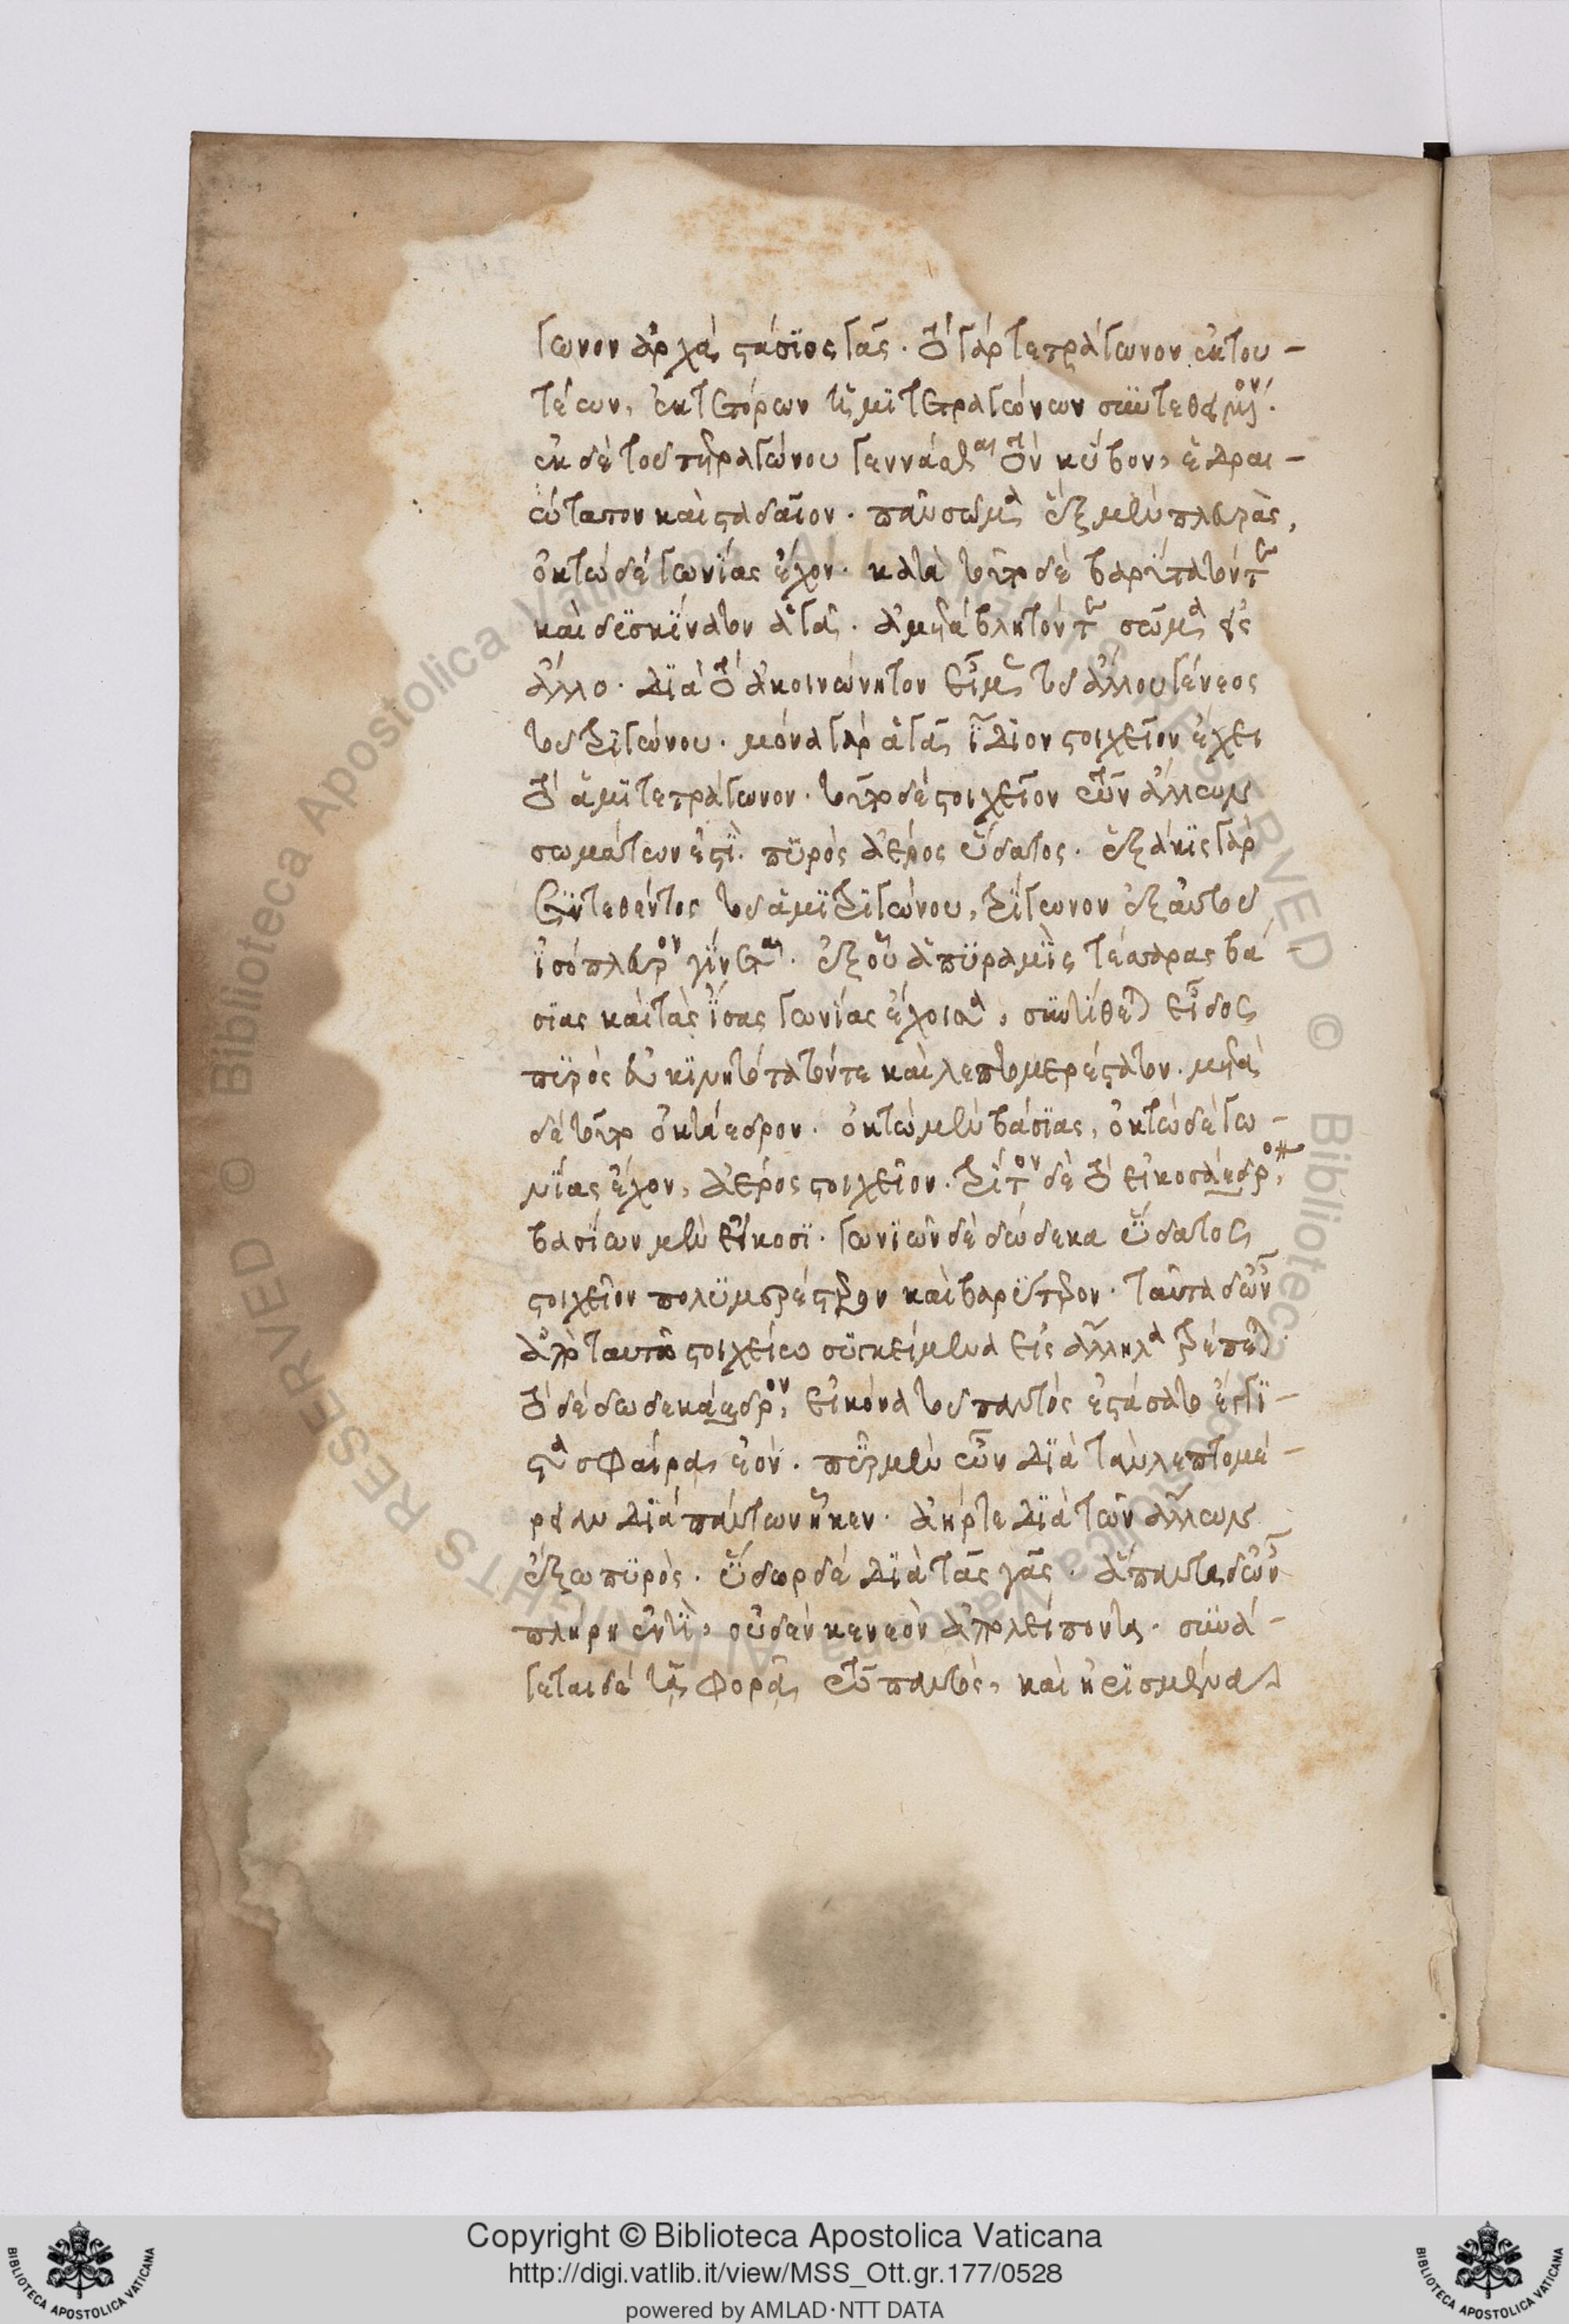 γωνον ἀρχὰ συστάσιος γᾶς. τὸ γὰρ τετράγωνον ἐκ του-
τέων, ἐκ τετόρων ἡμιτετραγώνων συντεθειμένον.
ἐκ δὲ τοῦ τετραγώνου γεννᾶσθαι τὸν κύβον, ἑδραι-
ότατον καὶ σταδαῖον πάντη σῶμα ἓξ μὲν πλευρὰς,
ὀκτὼ δὲ γωνίας ἔχον. κατὰ τοῦτο δὲ βαρύτατόν τε
καὶ δυσκίνατον ἁ γᾶ. ἀμετάβλητόν τε σῶμα εἰς
ἄλλο. διὰ τὸ ἀκοινώνητον εἶμεν τοῦ ἄλλου γένεος
τοῦ τριγώνου. μόνα γὰρ ἁ γᾶ ἴδιον στοιχεῖον ἔχει
τὸ ἁμιτετράγωνον. τοῦτο δὲ στοιχεῖον τῶν ἄλλων
σωμάτων ἐστὶ. πυρὸς ἀέρος ὕδατος. ἑξάκις γὰρ
συντεθέντος τοῦ ἁμιτριγώνου, τρίγωνον ἐξ αὐτοῦ
ἰσόπλευρον γίνεται. ἐξ οὗ ἁ πυραμὶς τέσσαρας βά-
σιας καὶ τὰς ἴσας γωνίας ἔχοισα, συντίθεται εἶδος
πυρὸς εὐκινητότατόν τε καὶ λεπτομερέστατον. μετὰ
δὲ τοῦτο ὀκτάεδρον. ὀκτὼ μὲν βάσιας, ὀκτὼ δὲ γω-
νίας ἔχον, ἀέρος στοιχεῖον. τρίτον δὲ τὸ εἰκοσάεδρον,
βασίων μὲν εἴκοσι. γωνιῶν δὲ δώδεκα ὕδατος
στοιχεῖον πολυμερέστερον καὶ βαρύτερον. ταῦτα δ᾽ ὦν
ἀπὸ ταυτῶ στοιχείω συγκείμενα εἰς ἄλληλα τρέπεται
τὸ δὲ δωδεκάεδρον, εἰκόνα τοῦ παντὸς ἐστάσατο ἔγγι-
στα σφαίρας ἐόν. πῦρ μὲν ὦν διὰ τὰν λεπτομέ-
ρειαν διὰ πάντων ἧκεν. ἀήρ τε διὰ τῶν ἄλλων
ἔξω πυρὸς. ὕδωρ δὲ διὰ τᾶς γᾶς. ἅπαντα δ᾽ ὦν
πλήρη ἐντὶ, οὐδὲν κενεὸν ἀπολείποντα. συνά-
γεται δὲ τᾷ φορᾷ τοῦ παντὸς, καὶ ἠρεισμένα
Copyright © Biblioteca Apostolica Vaticana
http://digi.vatlib.it/view/MSS_Ott.gr.177/0528
powered by AMLAD·NTT DATA